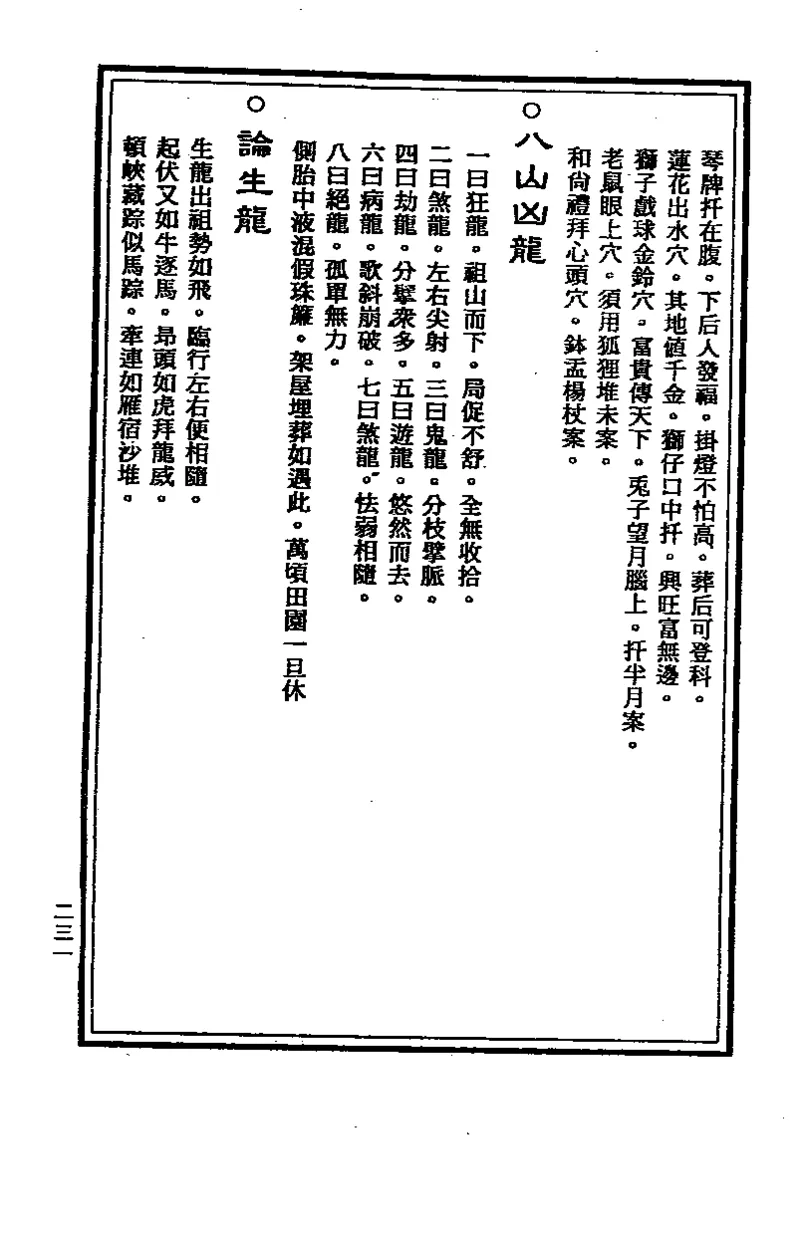 琴牌扦在腹。下后人發福。掛燈不怕高。葬后可登科。
蓮花出水穴。其地值千金。獅仔口中扦。興旺富無邊。
獅子戲球金鈴穴。富貴傳天下。兎子望月腦上。扦半月案。
老鼠眼上穴。須用狐狸堆未案。
和尙禮拜心頭穴。鉢盂楊杖案。
○八山凶龍
一曰狂龍。祖山而下。局促不舒。全無收拾。
二曰煞龍。左右尖射。三曰鬼龍。分枝擘脈。
四曰劫龍。分擘衆多。五曰遊龍。悠然而去。
六曰病龍。歌斜崩破。七曰煞龍。怯弱相隨。
八曰絕龍。孤單無力。
側胎中液混假珠簾。架屋埋葬如遇此。萬頃田園一旦休
○論生龍
生龍出祖勢如飛。臨行左右便相隨。
起伏又如牛逐馬。昂頭如虎拜龍威。
頓峽藏踪似馬踪。牽連如雁宿沙堆。
二三一